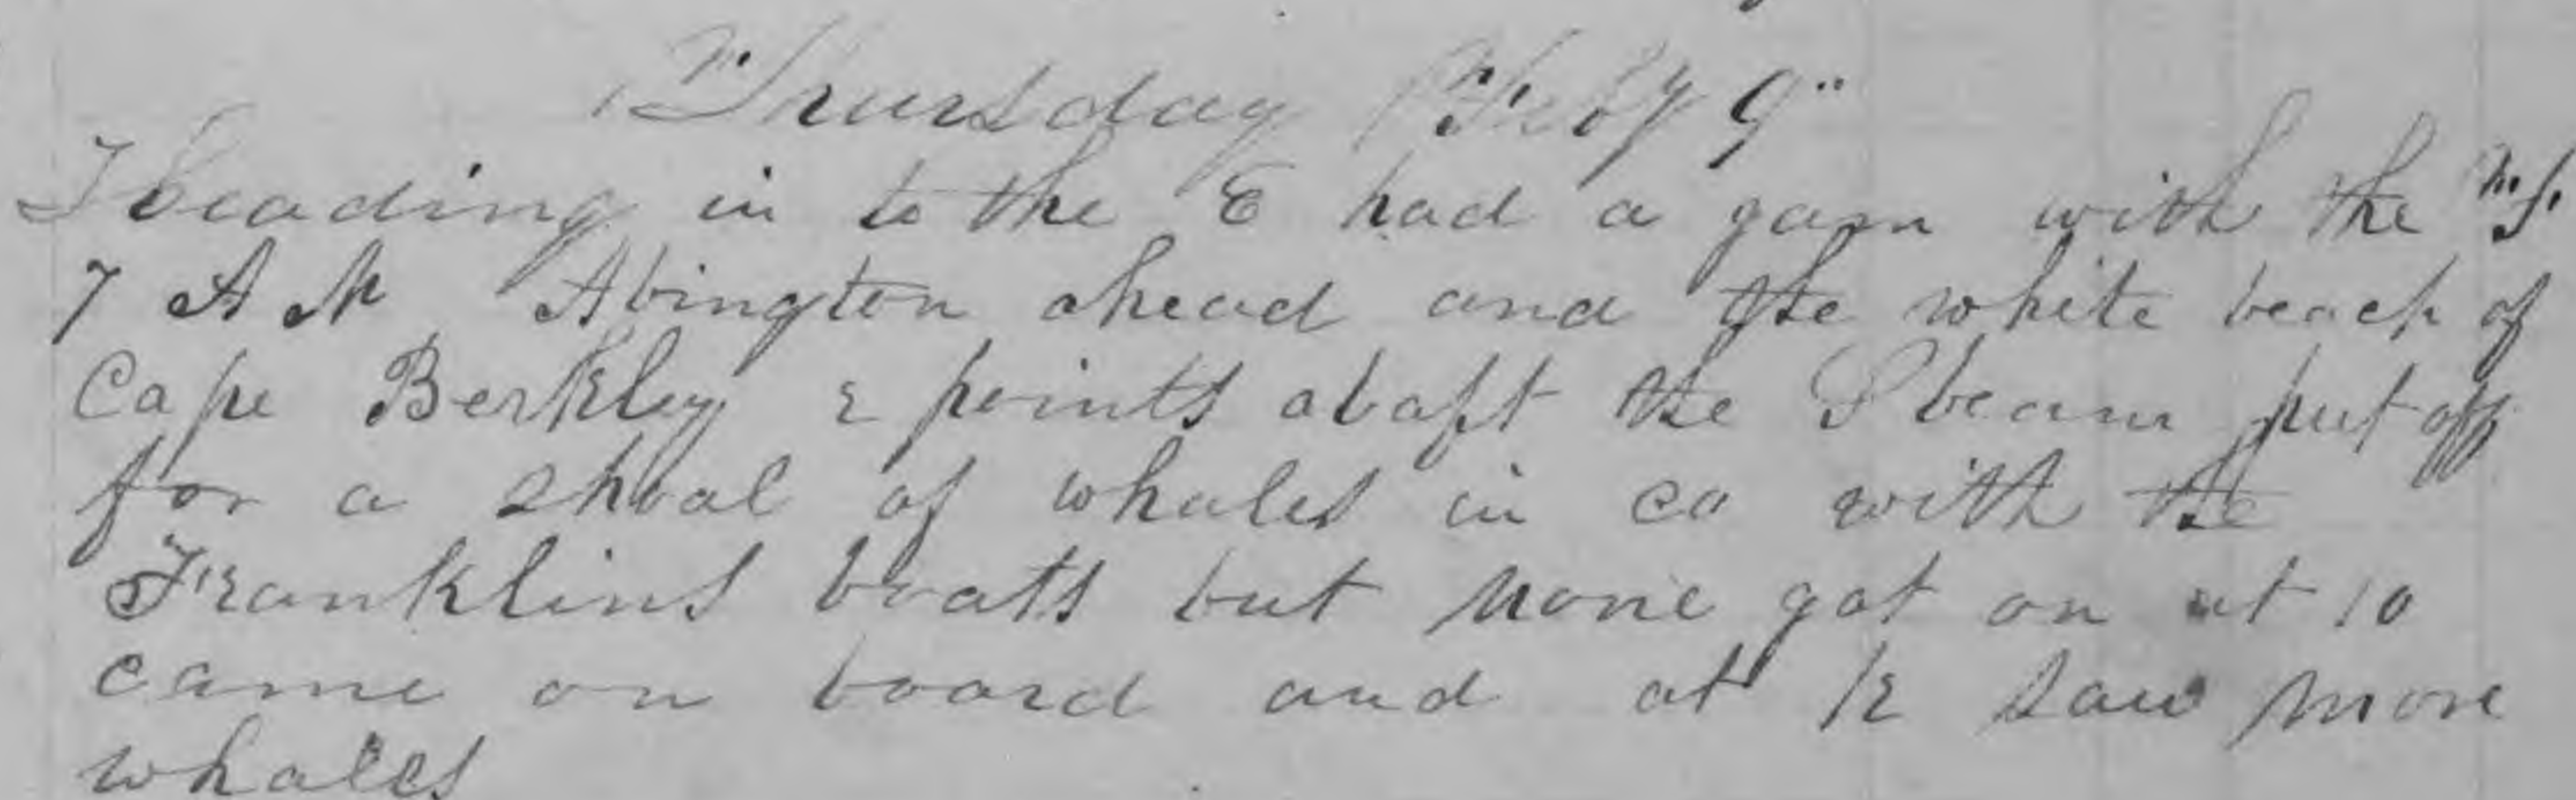 Thursday Feby 9"
Heading in to the E had a gam with the F.
7 A M Abington ahead and the white beach of
Cape Berkley 2 points abaft the S beam put off
for a shoal of whales in co with the
Franklins boats but none got on at 10
came on board and at 12 saw more
whales